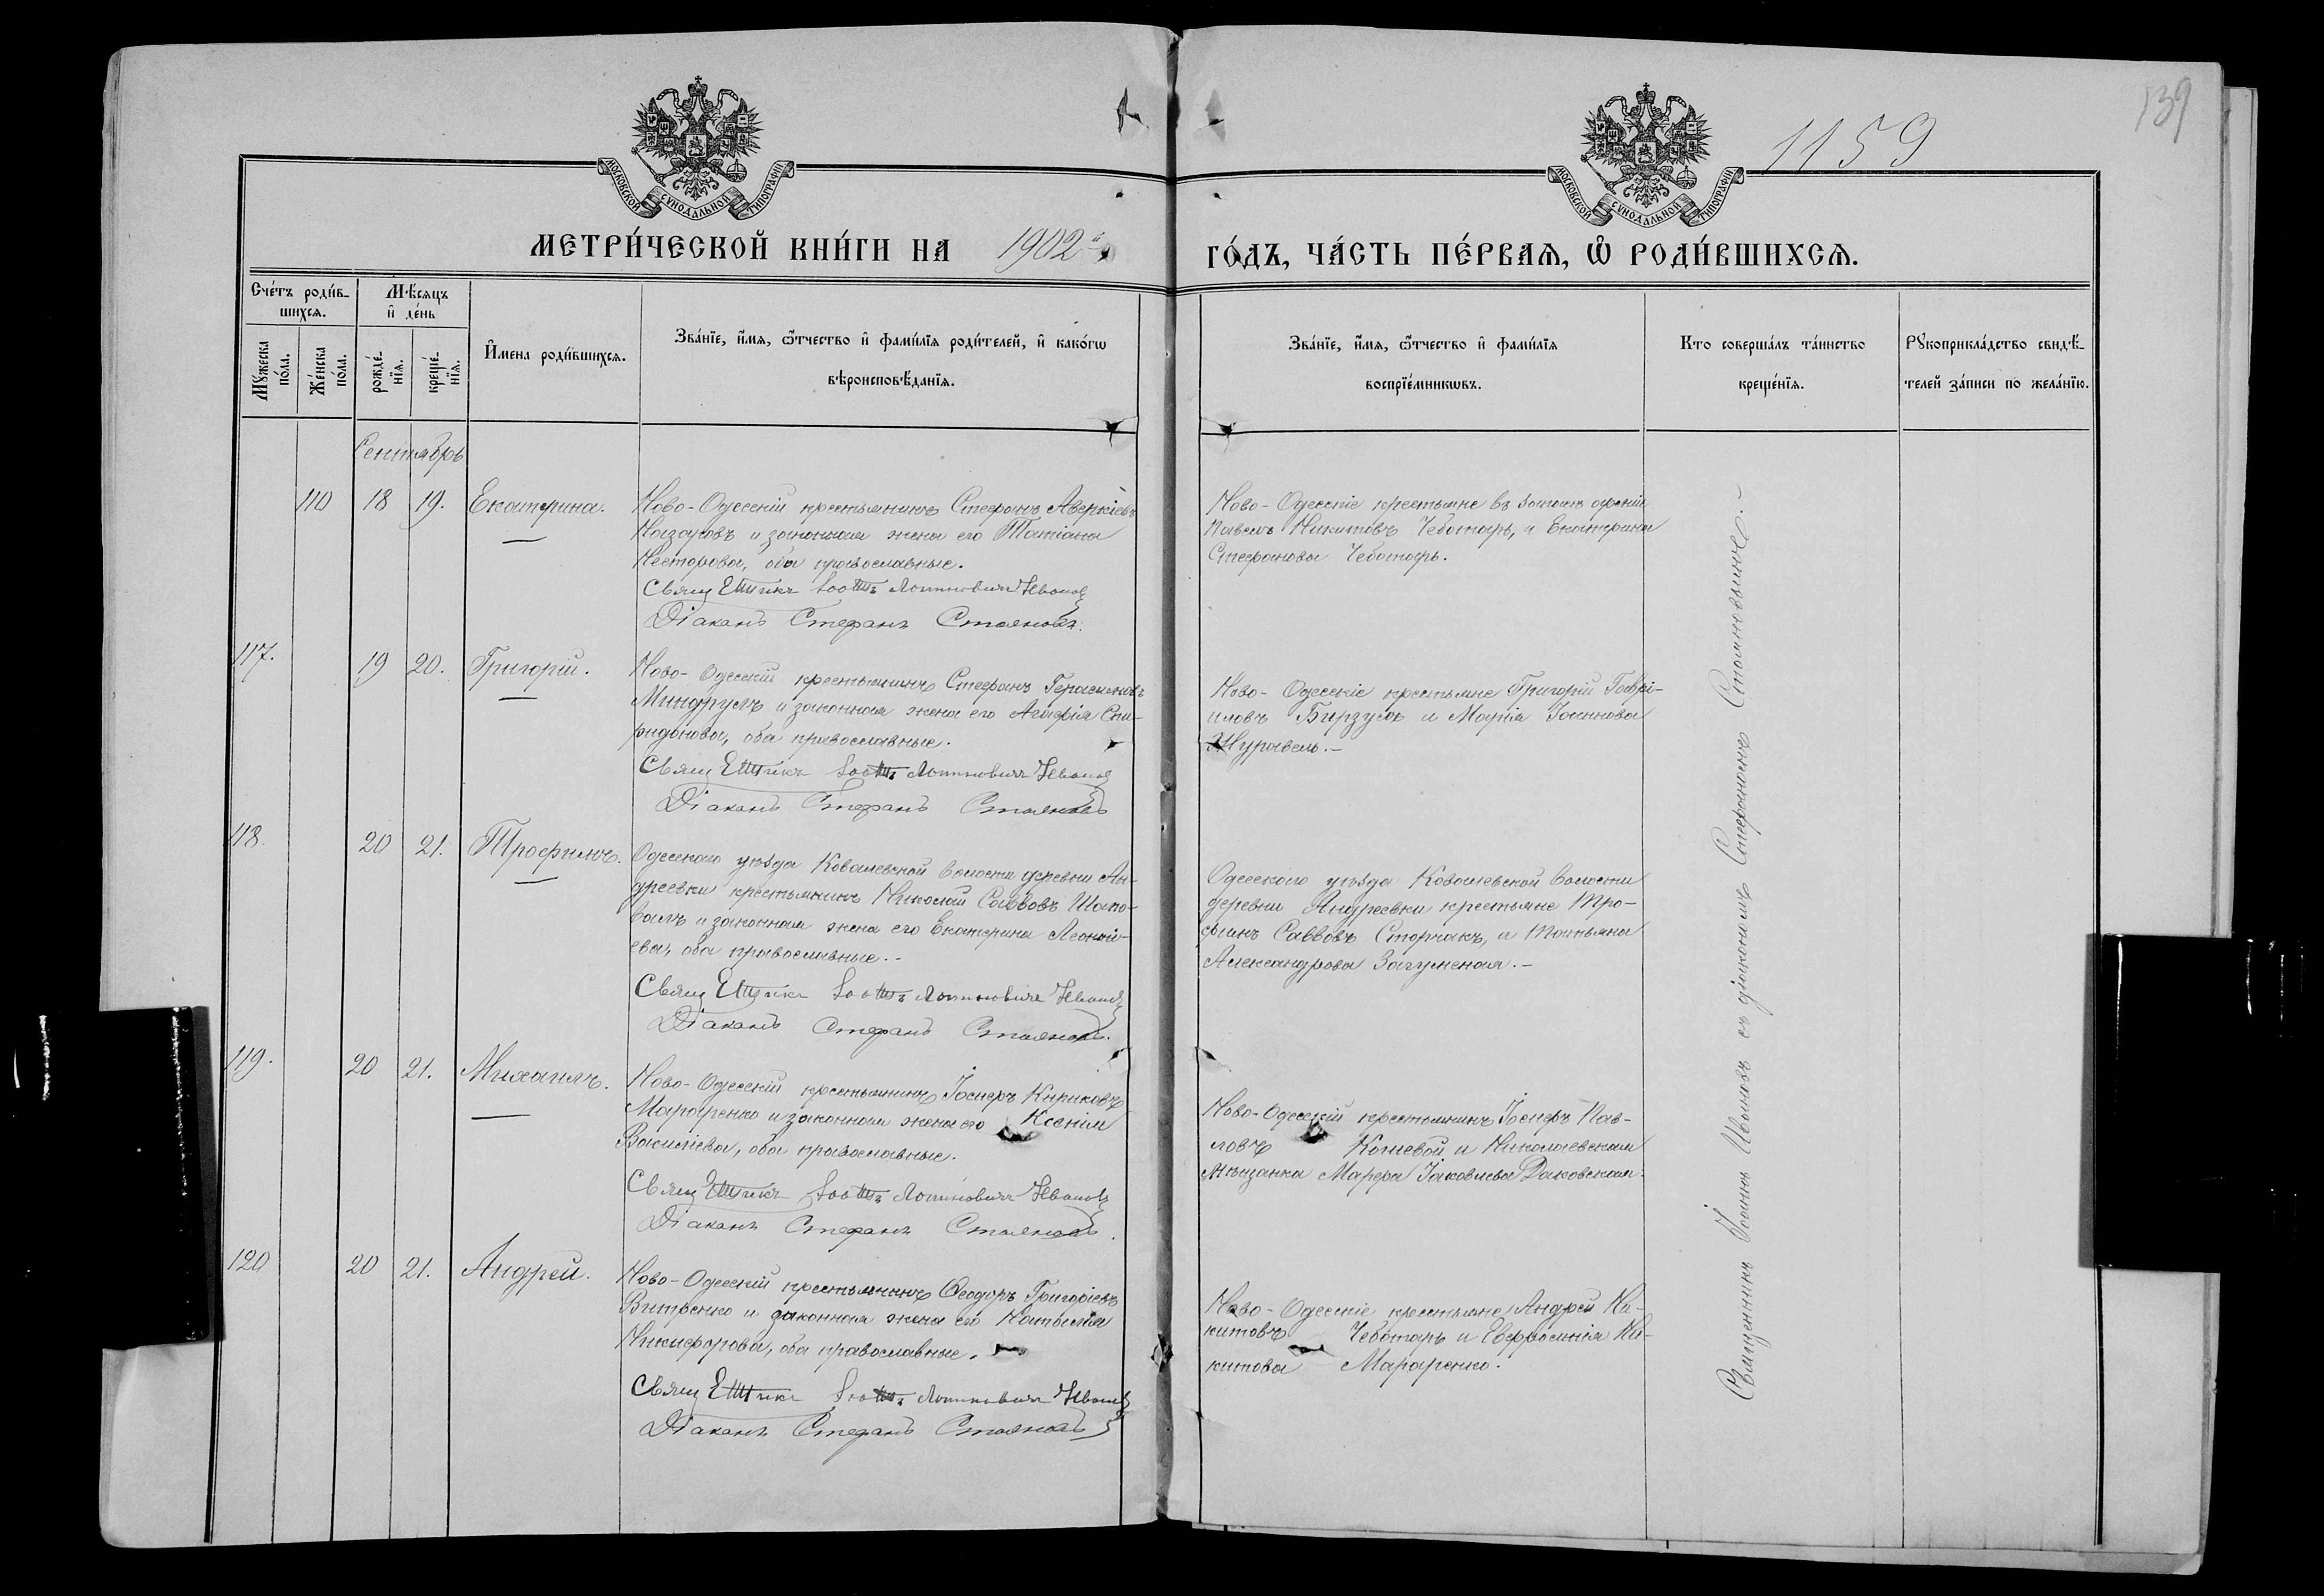 139
1159
МОСКОВСКОЙ СУНОДАЛЬНОЙ ТИПОГРАФІИ
МОСКОВСКОЙ СУНОДАЛЬНОЙ ТИПОГРАФІИ
МЕТРИ́ЧЕСКОЙ КНИ́ГИ НА 1902й ГО́ДЪ, ЧА́СТЬ ПЕ́РВАѦ, Ѡ҆ РОДИ́ВШИХСѦ.
Сче́тъ роди́в-
шихсѧ.
Мѣ́сѧцъ
и҆ де́нь
Мꙋ́жеска
по́ла.
Же́нска
по́ла.
рожде́-
нїѧ.
креще́-
нїѧ.
И҆мена роди́вшихсѧ.
Зва́нїе, и҆́мѧ, ѻ҆́тчество и҆ фами́лїѧ роди́телей, и҆ како́гѡ
вѣроисповѣ́данїѧ.
Зва́нїе, и҆́мѧ, ѻ҆́тчество и҆ фами́лїѧ
воспрїе́мникѡвъ.
Кто соверша́лъ та́инство
креще́нїѧ.
Рꙋкоприкла́дство свидѣ́-
телей за́писи по жела́нїю.
Сентябрь
110 18 19. Екатерина.
Ново-Одесскій крестьянинъ Стефанъ Аверкіевъ
Назаровъ и законная жена его Татіана
Несторова, оба православные.
Свящ Іоаннъ Иванов
Діаконъ Стефанъ Стояновъ.
Ново-Одесскіе крестьяне
Павелъ Никитовъ Чеботарь, и Екатерина
Стефанова Чеботарь.
117. 19 20. Григорій.
Ново-Одесскій крестьянинъ Стефанъ Герасимовъ
Миндрулъ и законная жена его Агафія Спи-
ридонова, оба православные.
Свящ Іоаннъ Иванов
Діаконъ Стефанъ Стояновъ
Ново-Одесскіе крестьяне Григорій Гаврі-
иловъ Бурзулъ и Марія Іоаннова
Журавель.-
118. 20 21. Трофимъ.
Одесскаго уѣзда Ковалевской волости деревни Ан-
дреевки крестьянинъ Николай Саввовъ Шапо-
валъ и законная жена его Екатерина Леонті-
ева, оба православные.-
Свящ Іоаннъ Иванов
Діаконъ Стефанъ Стояновъ.
Одесскаго уѣзда Ковалевской волости
деревни Андреевки крестьяне Тро-
фимъ Саввовъ Сторчакъ, и Татьяна
Александрова Загуменая.-
119. 20 21. Михаилъ.
Ново-Одесскій крестьянинъ Іосифъ Кириковъ
Мараренко и законная жена его Ксенія
Василіева, оба православные.
Свящ Іоаннъ Иванов
Діаконъ Стефанъ Стояновъ.
Ново-Одесскій крестьянинъ Іосифъ Пав-
ловъ Кошевой и Николаевская
мѣщанка Марфа Іаковлева Даковская.
120 20 21. Андрей.
Ново-Одесскій крестьянинъ Ѳеодоръ Григоріевъ
Витренко и законная жена его Наталія
Никифорова, оба православные.
Свящ Іоаннъ Иванов
Діаконъ Стефанъ Стояновъ
Ново-Одесскіе крестьяне Андрей Ни-
китовъ Чеботарь и Евфросинія Ни-
китова Мараренко.
Священникъ Іоаннъ Ивановъ съ діакономъ Стефаномъ Стояновымъ.-